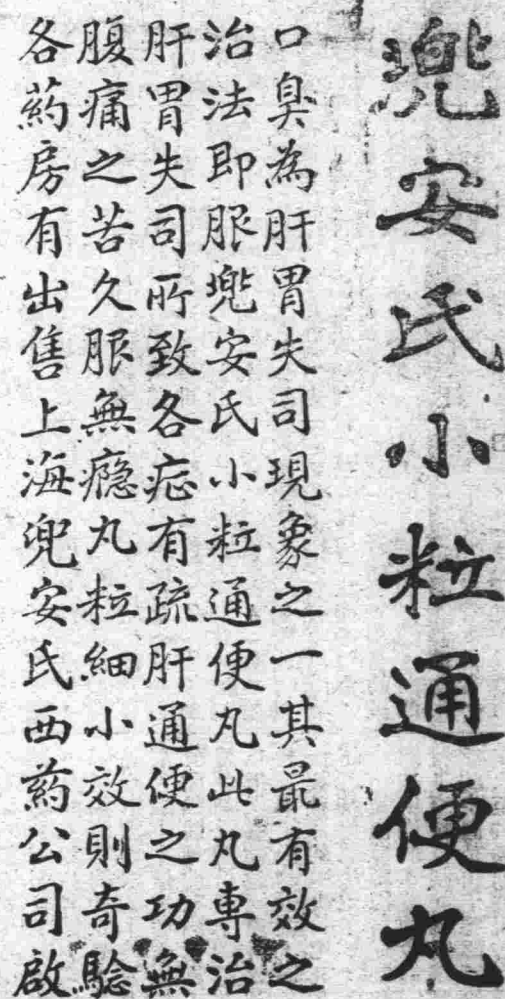 兜安氏小粒通便丸
口臭為肝胃失司現象之一其最有效之
治法即服兜安氏小粒通便丸此丸專治
肝胃失司所致各症有疏肝通便之功無
腹痛之苦久服無癮丸粒細小效則奇驗
各葯房有出售上海兜安氏西葯公司啟